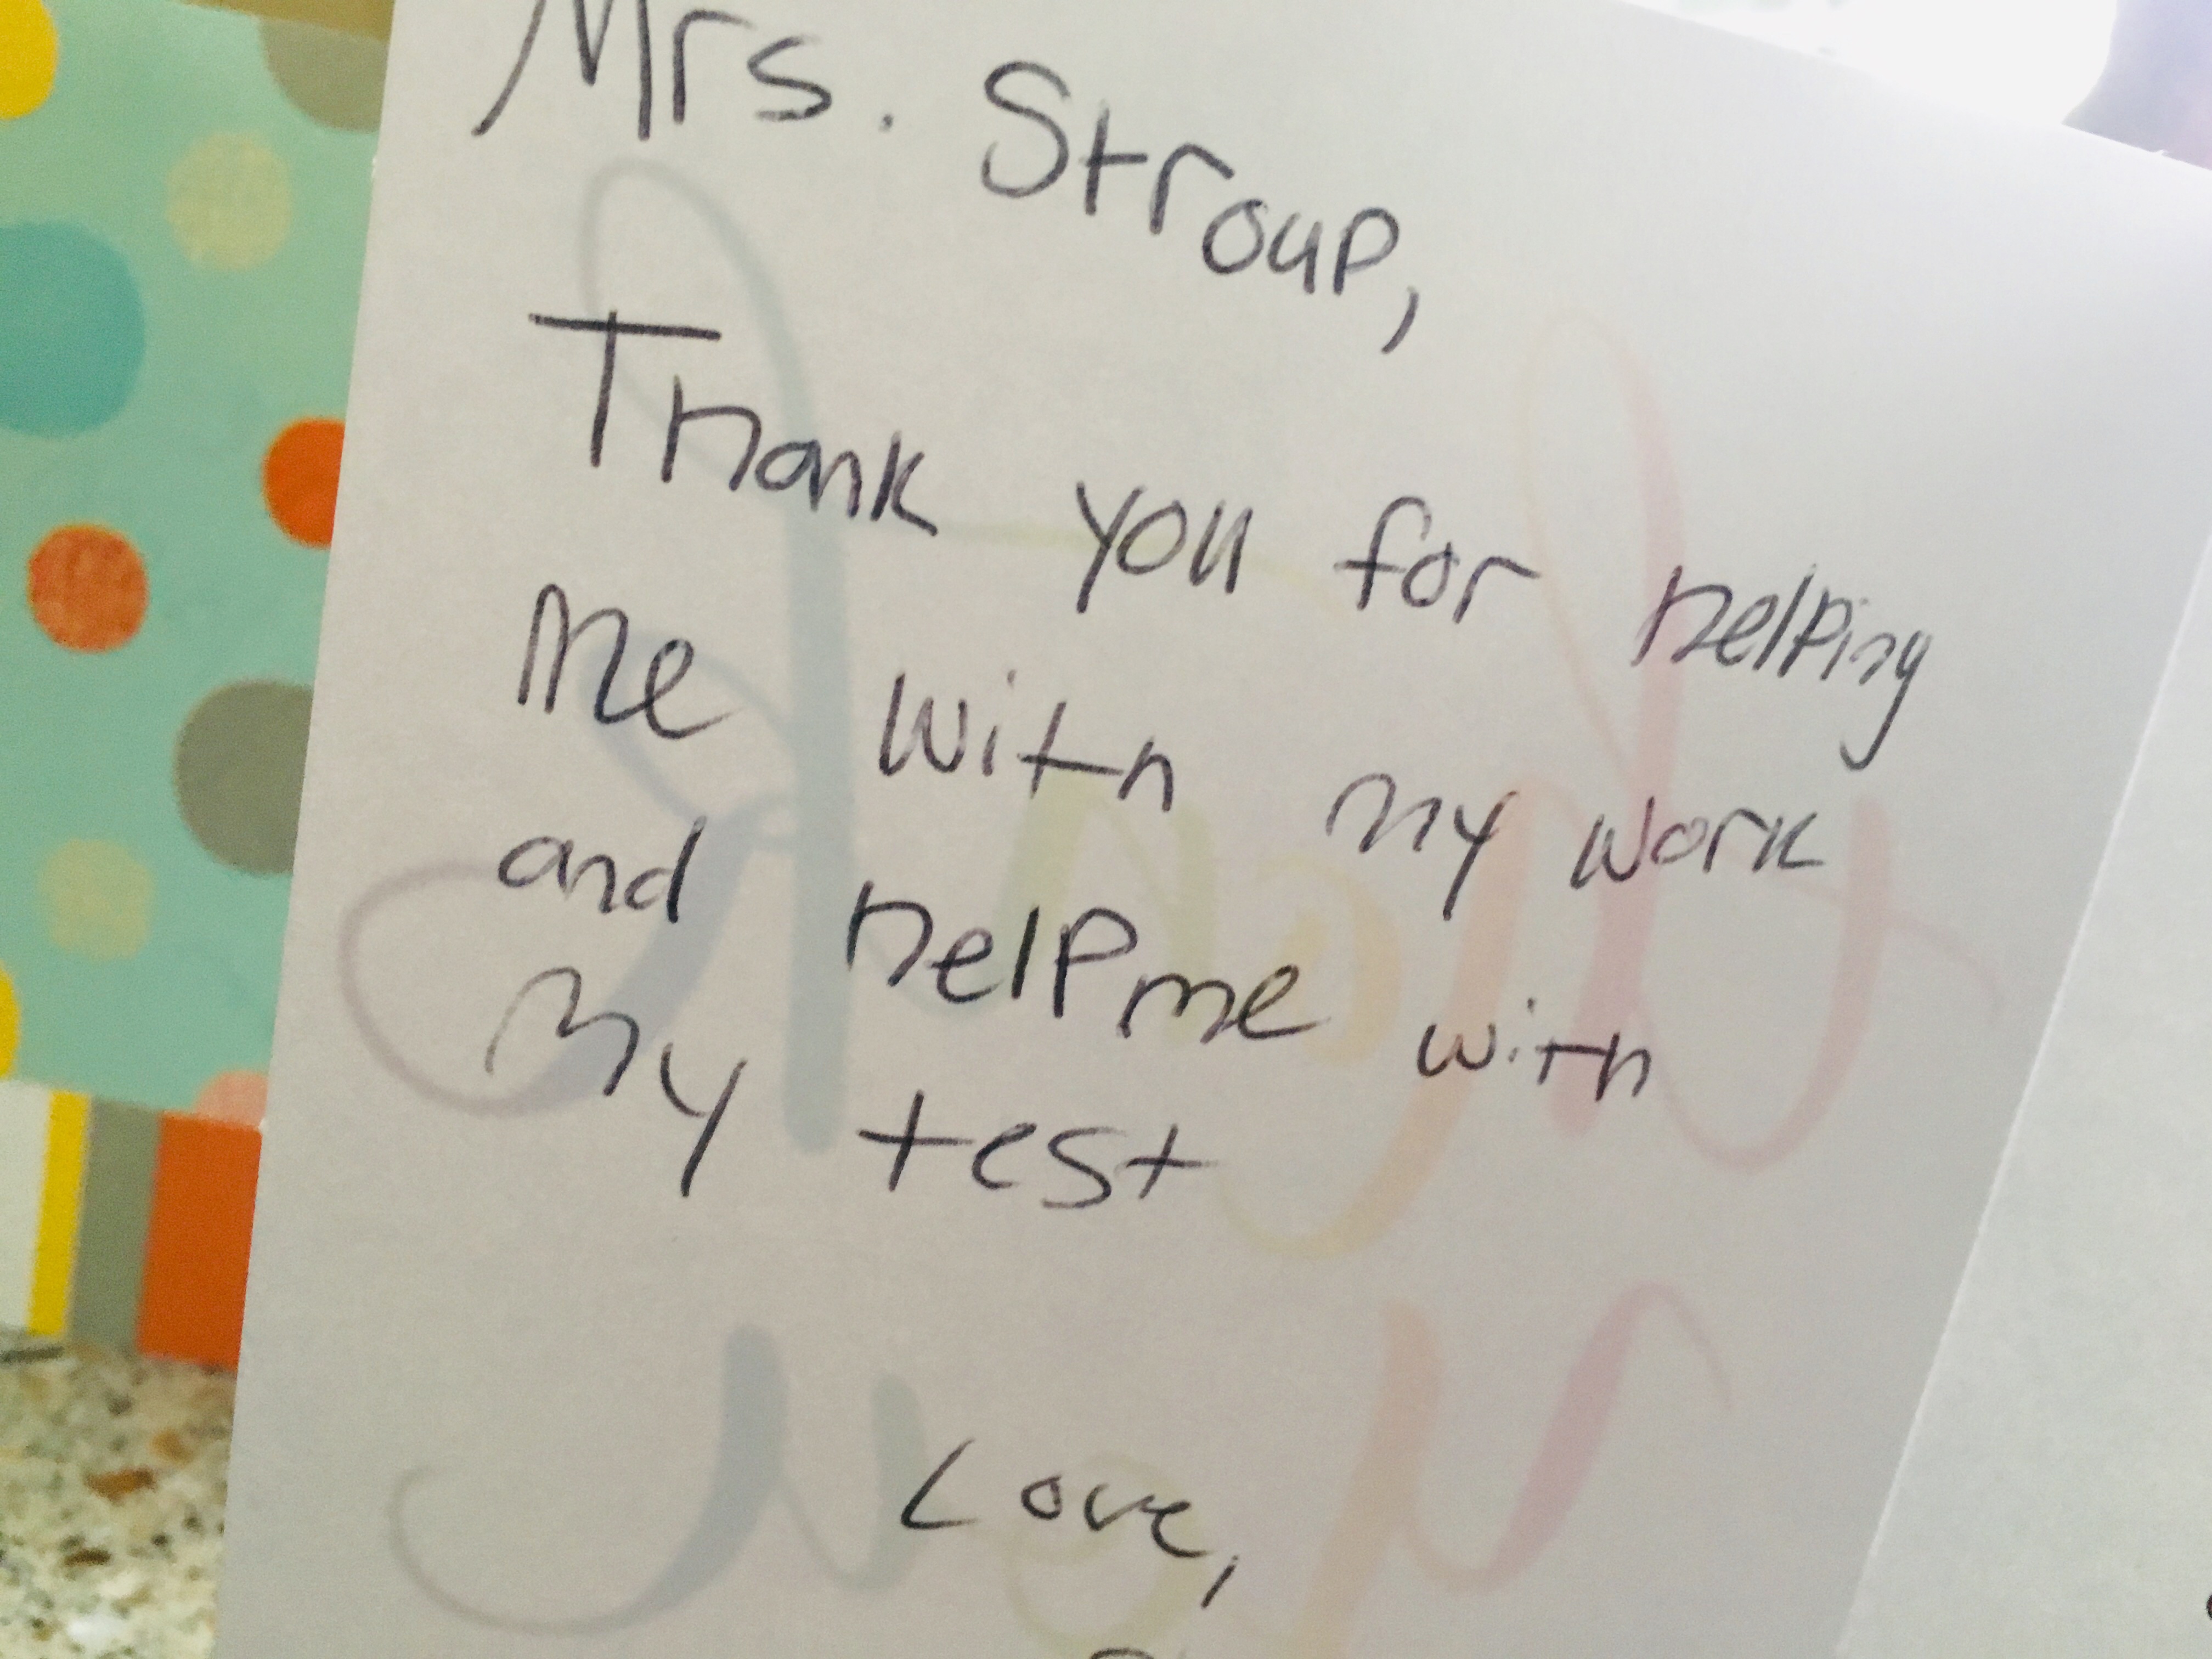 Mrs. Stroup,
Thank you for helping
me with my work
and help me with
my test
Love,